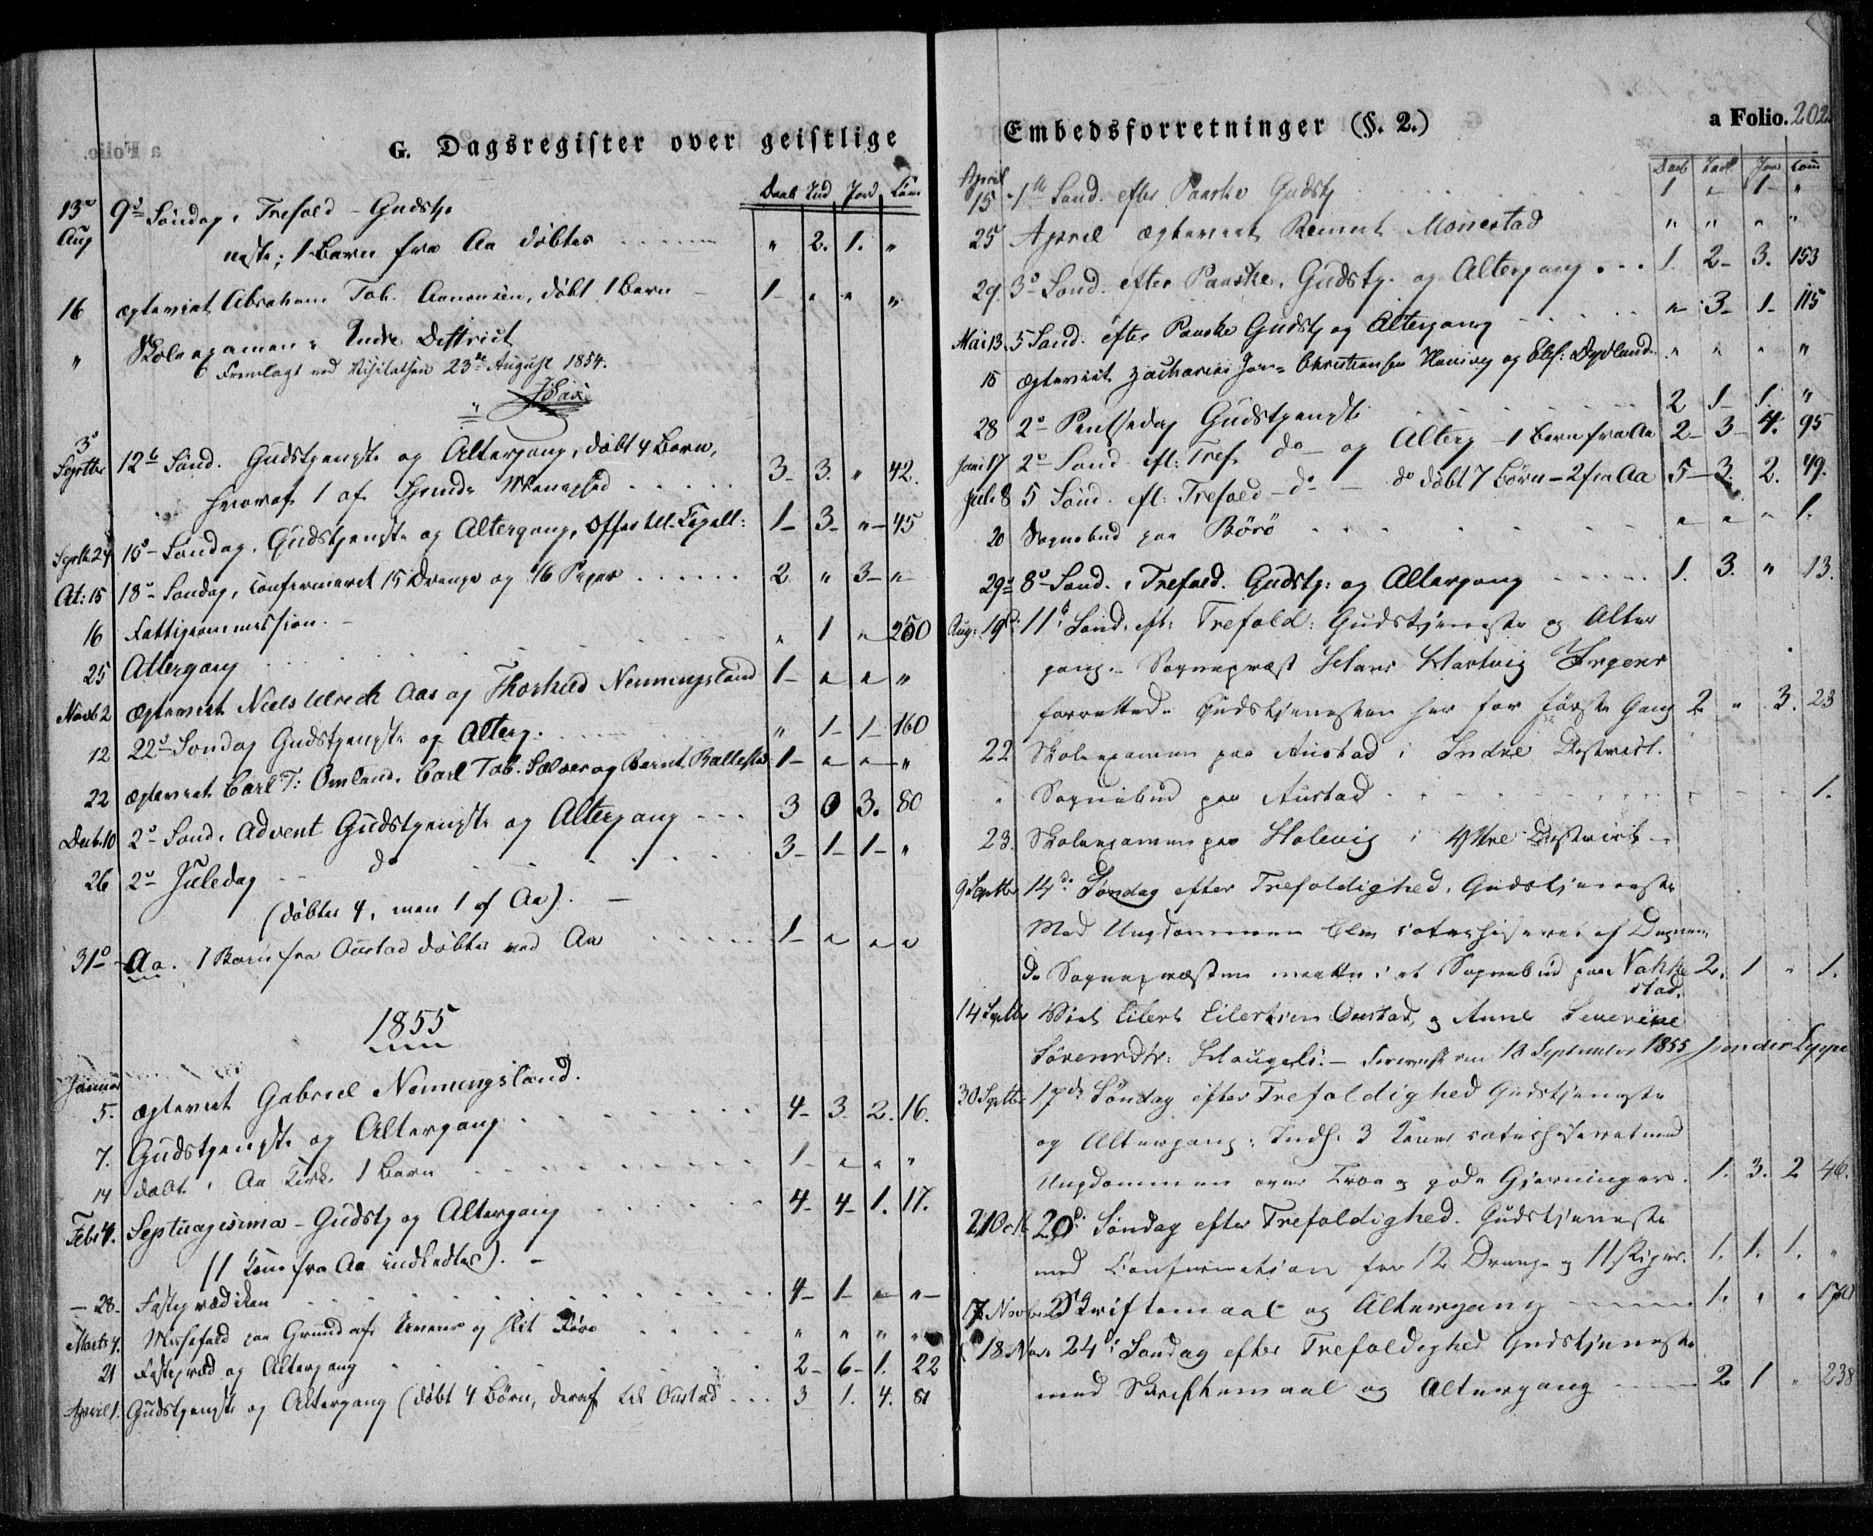 G. Dagsregister over geistlige
Daab Ind Jord Com
13de Aug 9de Søndag i Trefold - Gudstje
neste; 1 Barn fra Aa døbtes " 2. 1. "
16 ægteviet Abraham Tob. Aanensen, døbt 1 Barn 1 - " " "
" Skoleexamen i Indre District
Fremlagt ved Visitatsen 23de August 1854.
3de Septbr 12te Sønd. Gudstjeneste og Altergang, døbt 4 Børn,
hvoraf 1 af 3 - 3. " 42.
Septb 24 15de Søndag. Gudstjeneste og Altergang, Offer til 1 - 3 - " - 45
Oct: 15 18de Søndag, confirmeret 15 Drenge og 16 Piger 2 " 3 - "
16 Fattigcommission. -
25 Altergang " 1 " 250
Novb 2 ægteviet Niels Ulrick Aas og Thorhild Nenningsland 1 - " " "
12 22de Søndag Gudstjeneste og Alterg. " 1 - 1 - 160
22 ægteviet Carl T: Omland, Carl Tob. og Bernt 1 - " " "
Decb. 10 2de Sønd. Advent Gudstjeneste og Altergang 3 0 3. 80
26 2de Juledag do 3 - 1 - 1 - "
(døbtes 4, men 1 af Aa). -
31de Aa. 1 Barn fra Austad døbtes ved Aa 1 - " " "
1855
Januar
5. ægteviet Gabriel Nenningsland.
7. Gudstjeneste og Altergang 4 - 3. 2. 16.
14 døbt i Aa Kirke 1 Barn 1 - " " "
Febr 4. Septuagesima - Gudstj og Altergang 4 - 4 - 1. 17.
(1 Kone fra Aa indledtes). -
- 28 - Fasteprædiken 4 - 1 - " " -
Marts 7. paa Grund af og " " " "
21 Fastepræd og Altergang 2 - 6 - 1. 22
April 1. Gudstjeneste og Altergang (døbt 4 Børn, deraf Austad 3 1. 4. 81
Embedsforretninger (§. 2.)
a Folio. 202.
Daab Indl Jord Com
April 15 1ste Sønd. efter Paaske Gudstj 1 " 1 - "
25 April ægteviet Monestad " " " "
29 3de Sønd. efter Paaske, Gudstj. og Altergang 1. 2 - 3. 153
Mai 13 5 Sønd. efter Paaske Gudstj og Altergang " 3 - 1 - 115
15 ægteviet Zacharias Christensen og Dydland " " " "
28 2den Pintsedag Gudstjeneste 2 1 - 1. "
Juni 17 2de Sønd. eft: Tref. do og Alterg - 1 Barn fra Aa 2 - 3 - 4. 95
Juli 8 5 Sønd. eft: Trefold - do - do døbt 7 Børn - 2 fra Aa 5 - 3. 2. 49.
20 Sognebud paa Børø " " " 1.
29de 8de Sønd. i Trefold. Gudstj: og Altergang 1. 3. " 13.
Aug: 19de 11te Sønd. eft: Trefold: Gudstjeneste og Alter
gang. Sognepræst Hans Hartvig Irgens
forrettede Gudstjenesten her for første Gang 2 " 3. 23
22 Skoleexamen paa Austad i Indre District.
" Sognebud paa Austad 1.
23. Skoleexamen paa Holevig i Ytre District -
9 Septbr 14de Søndag efter Trefoldighed. Gudstjeneste
Med Ungdommen blev catechiseret af Degnen,
da Sognepræsten maatte i et Sognebud paa Nakke 2. 1 " 1.
stad.
14 Septbr Viet Eilert Eilertsen Oustad, og Anne Severine
Sørensdtr: Haugeli. - 10 September 1855
30 Septbr 17de Søndag efter Trefoldighed Gudstjeneste
og Altergang; Indl. 3 Koner catechiseret med
Ungdommen over Troe og gode Gjerninger. 1. 3. 2 46.
21 Octb 20de Søndag efter Trefoldighed. Gudstjeneste
med Confirmation for 12 Drenge og 11 Piger. 1. 1. 1. "
17 Novbr Skriftemaal og Altergang 1. " " 170
18 Nov. 24de Søndag efter Trefoldighed Gudstjeneste
med Skriftemaal og Altergang 2 1 " 238